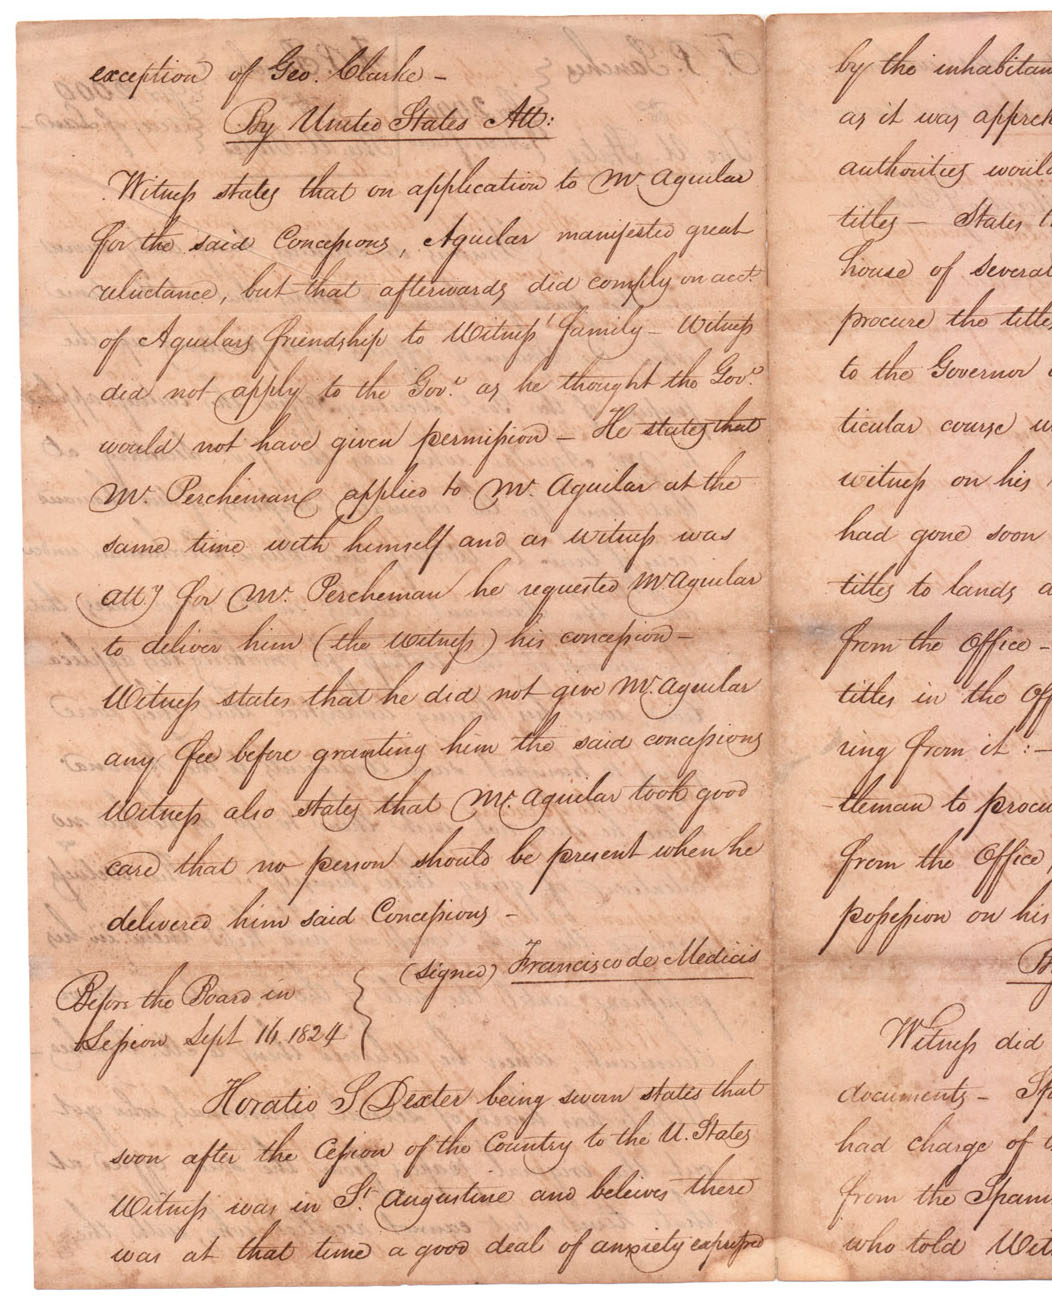 exception of Geo. Clarke –
By United States Att:
Witness states that on application to Mr Aguilar
for the said Concessions, Aguilar manifested great
reluctance, but that afterwards did comply on acct.
of Aguilars friendship to Witness' family – Witness
did not apply to the Govr. as he thought the Govr.
would not have given permission – He states that
Mr. Percheman applied to Mr. Aguilar at the
same time with himself and as witness was
atty for Mr. Percheman he requested Mr Aguilar
to deliver him (the Witness) his concession –
Witness states that he did not give Mr. Aguilar
any fee before granting him the said concessions
Witness also states that Mr. Aguilar took good
care that no person should be present when he
delivered him said Concessions –
(signed) Francisco de Medicis
Before the Board in
Session Sept 16 1824
Horatio S Dexter being sworn states that
soon after the Cession of the Country to the U. States
Witness was in St Augustine and beleives there
was at that time a good deal of anxiety expressed
by the inhabitan
as it was appreh
authorities would
titles – States t
house of several
procure the titles
to the Governor
ticular course w
witness on his
had gone soon
titles to lands a
from the Office –
titles in the Off
ring from it : –
tleman to procu
from the Office,
possession on his
By
Witness did
documents – Spa
had charge of
from the Spani
who told Wit